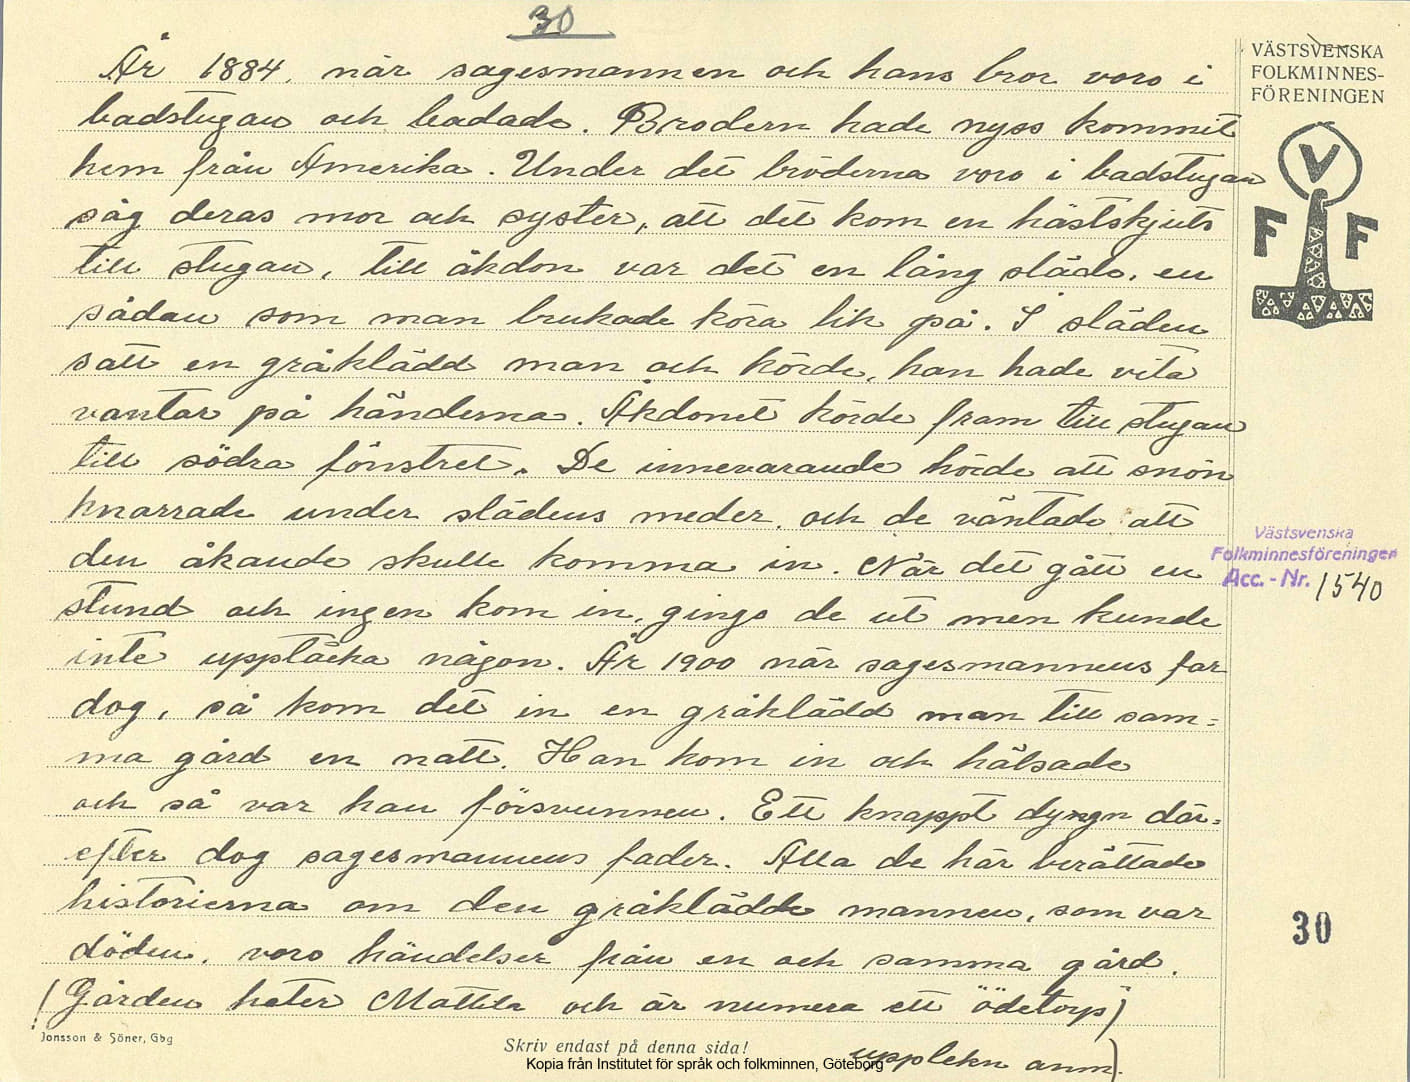 30
År 1884, när sagesmannen och hans bror voro i
badstugan och badade. Brodern hade nyss kommit
hem från Amerika. Under det bröderna voro i badstugan
såg deras mor och syster, att det kom en hästskjuts
till stugan, till åkdon var det en lång släde, en
sådan som man brukade köra lik på. I släden
satt en gråklädd man och körde, han hade vita
vantar på händerna. Åkdonet körde fram till stugan
till södra fönstret. De innevarande hörde att snön
knarrade under slädens meder, och de väntade att
den åkande skulle komma in. När det gått en
stund och ingen kom in, gingo de ut men kunde
inte upptäcka någon. År 1900 när sagesmannens far
dog, så kom det in en gråklädd man till sam=
ma gård en natt. Han kom in och hälsade
och så var han försvunnen. Ett knappt dyngn där=
efter dog sagesmannens fader. Alla de här berättade
historierna om den gråklädde mannen, som var
döden, voro händelser från en och samma gård.
(Gården heter Mattila och är numera ett "ödetorp")
upplekn anm).
VÄSTSVENSKA
FOLKMINNES-
FÖRENINGEN
V
F F
Västsvenska
Folkminnesföreningen
Acc. - Nr. 1540
30
Jonsson & Söner, Gbg
Skriv endast på denna sida!
Kopia från Institutet för språk och folkminnen, Göteborg